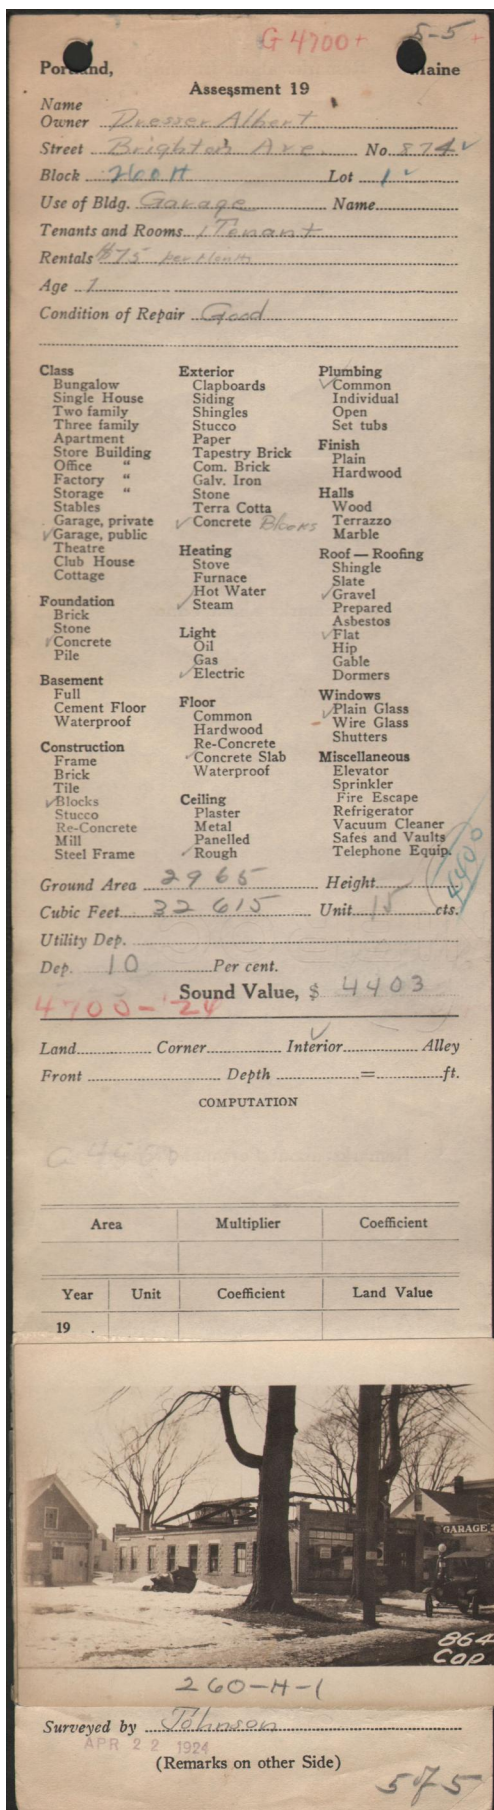 G 4700+ 5-5 +
Portland, Maine
Assessment 19
Name
Owner Dresser Albert
Street Brighton Ave. No. 874
Block 260 H Lot 1
Use of Bldg. Garage Name
Tenants and Rooms 1 Tenant
Rentals $75 per Month
Age 7
Condition of Repair Good
Class
Bungalow
Single House
Two family
Three family
Apartment
Store Building
Office "
Factory "
Storage "
Stables
Garage, private
✓ Garage, public
Theatre
Club House
Cottage
Foundation
Brick
Stone
✓ Concrete
Pile
Basement
Full
Cement Floor
Waterproof
Construction
Frame
Brick
Tile
✓ Blocks
Stucco
Re-Concrete
Mill
Steel Frame
Exterior
Clapboards
Siding
Shingles
Stucco
Paper
Tapestry Brick
Com. Brick
Galv. Iron
Stone
Terra Cotta
✓ Concrete Blocks
Heating
Stove
Furnace
Hot Water
✓ Steam
Light
Oil
Gas
✓ Electric
Floor
Common
Hardwood
Re-Concrete
✓ Concrete Slab
Waterproof
Ceiling
Plaster
Metal
Panelled
✓ Rough
Plumbing
✓ Common
Individual
Open
Set tubs
Finish
Plain
Hardwood
Halls
Wood
Terrazzo
Marble
Roof — Roofing
Shingle
Slate
✓ Gravel
Prepared
Asbestos
✓ Flat
Hip
Gable
Dormers
Windows
✓ Plain Glass
Wire Glass
Shutters
Miscellaneous
Elevator
Sprinkler
Fire Escape
Refrigerator
Vacuum Cleaner
Safes and Vaults
Telephone Equip.
4400
Ground Area 2965 Height
Cubic Feet 32615 Unit 15 cts.
Utility Dep.
Dep. 10 Per cent.
Sound Value, $ 4403
4700 - '24
Land Corner Interior Alley
Front Depth = ft.
COMPUTATION
Area Multiplier Coefficient
Year Unit Coefficient Land Value
19
GARAGE
864
Cop
260-H-1
Surveyed by Johnson
APR 22 1924
(Remarks on other Side)
5 of 5